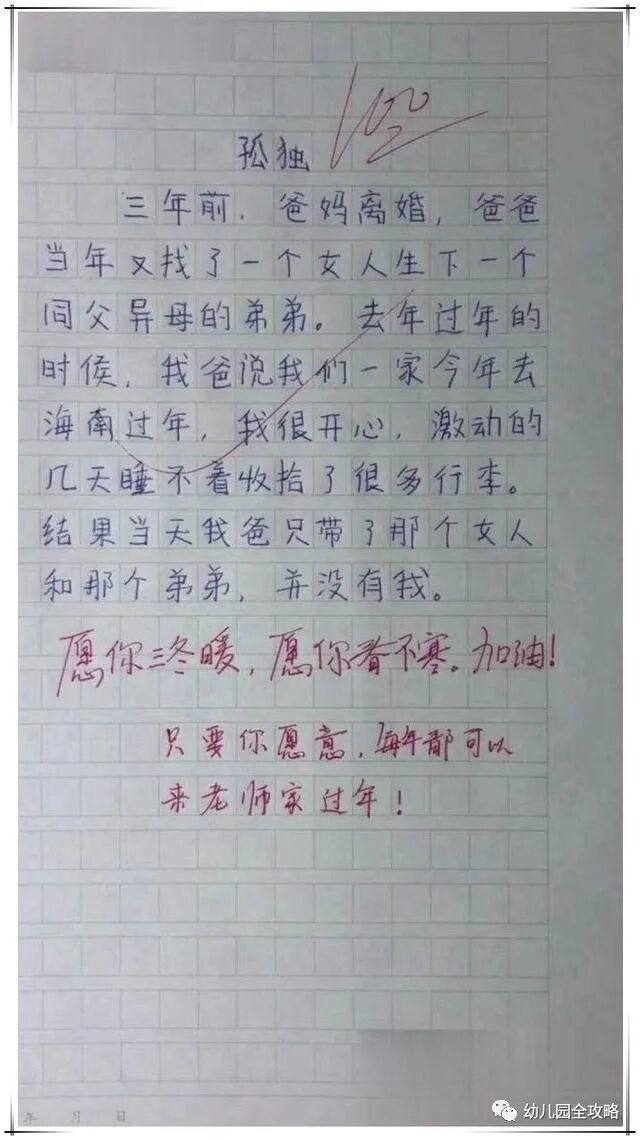 孤独
100
三年前，爸妈离婚，爸爸
当年又找了一个女人生下一个
同父异母的弟弟。去年过年的
时候，我爸说我们一家今年去
海南过年，我很开心，激动的
几天睡不着收拾了很多行李。
结果当天我爸只带了那个女人
和那个弟弟，并没有我。
愿你三冬暖，愿你春不寒。加油！
只要你愿意，每年都可以
来老师家过年！
年 月 日
幼儿园全攻略